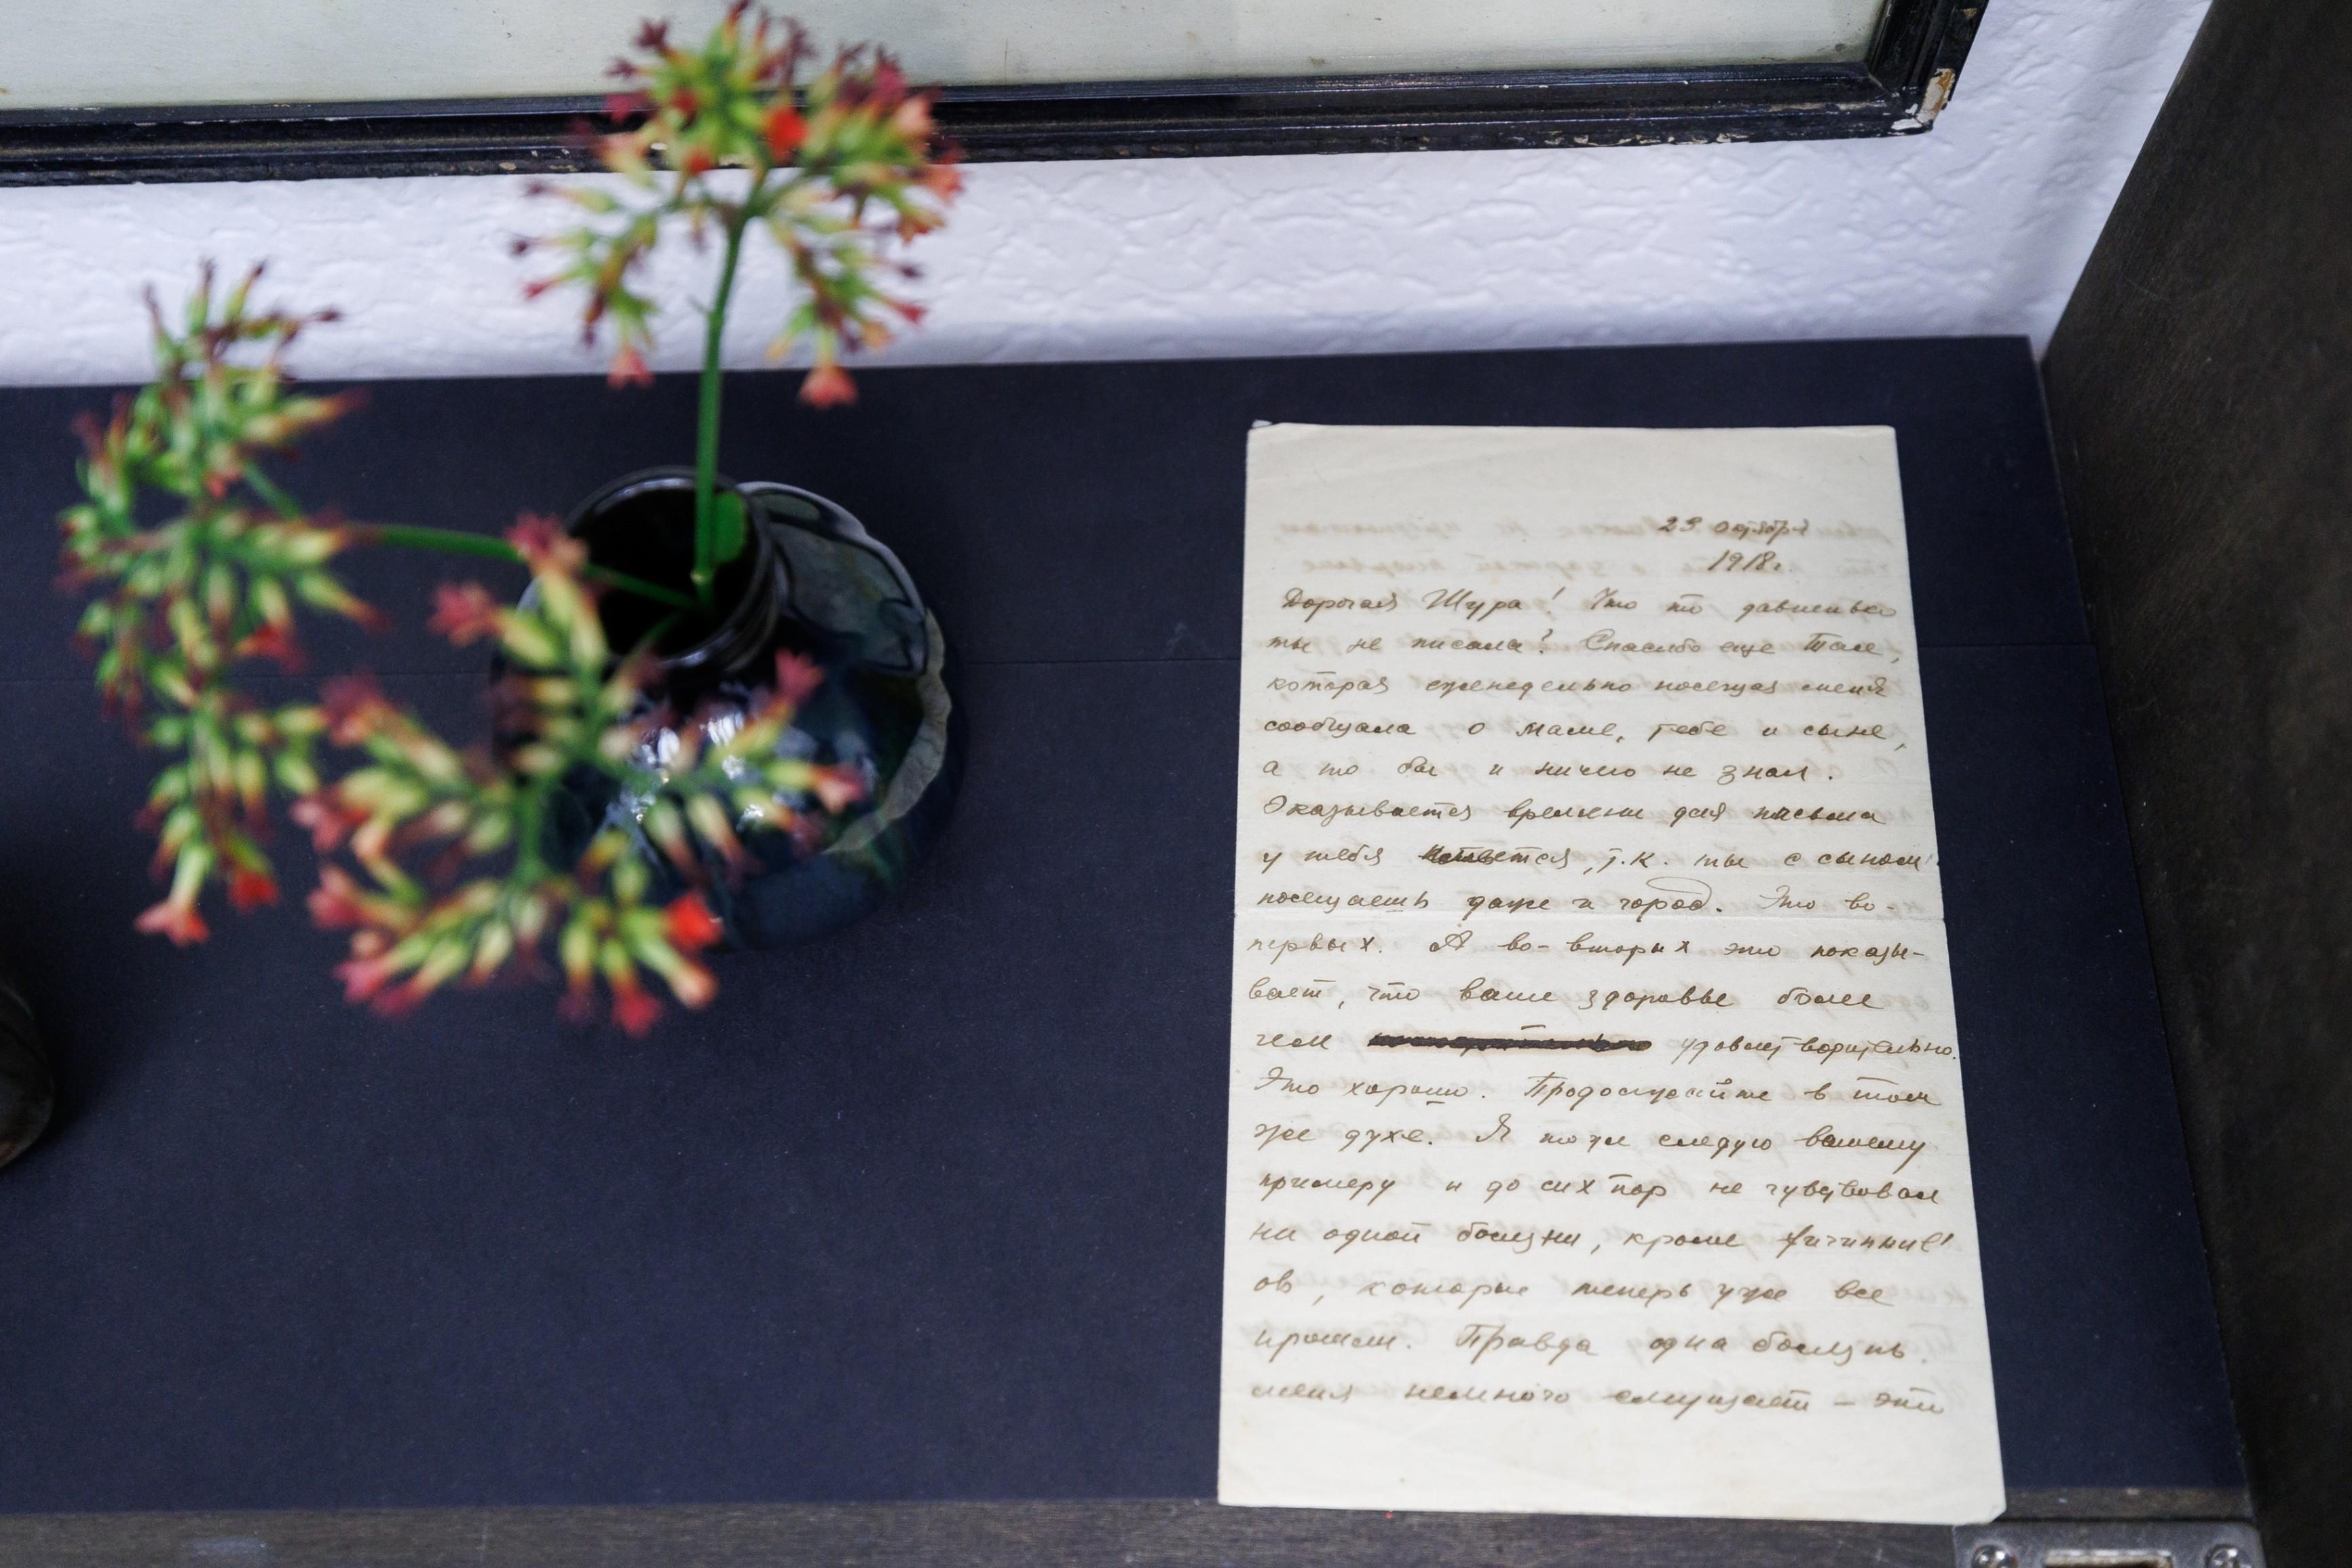 23 октября
1918г.
Дорогая Шура! Что то давненько
ты не писала? Спасибо еще Тале,
которая еженедельно посещая меня
сообщала о маме, тебе и сыне,
а то бы и ничего не знал.
Оказывается времени для письма
у тебя т.к. ты с сыном
посещаешь даже и город. Это во-
первых. А во-вторых это показы-
вает, что ваше здоровье более
чем удовлетворительно.
Это хорошо. Продолжайте в том
же духе. Я тоже следую вашему
примеру и до сих пор не чувствовал
ни одной болезни, кроме
ов, которые теперь уже все
прошли. Правда одна болезнь
меня немного смущает – это